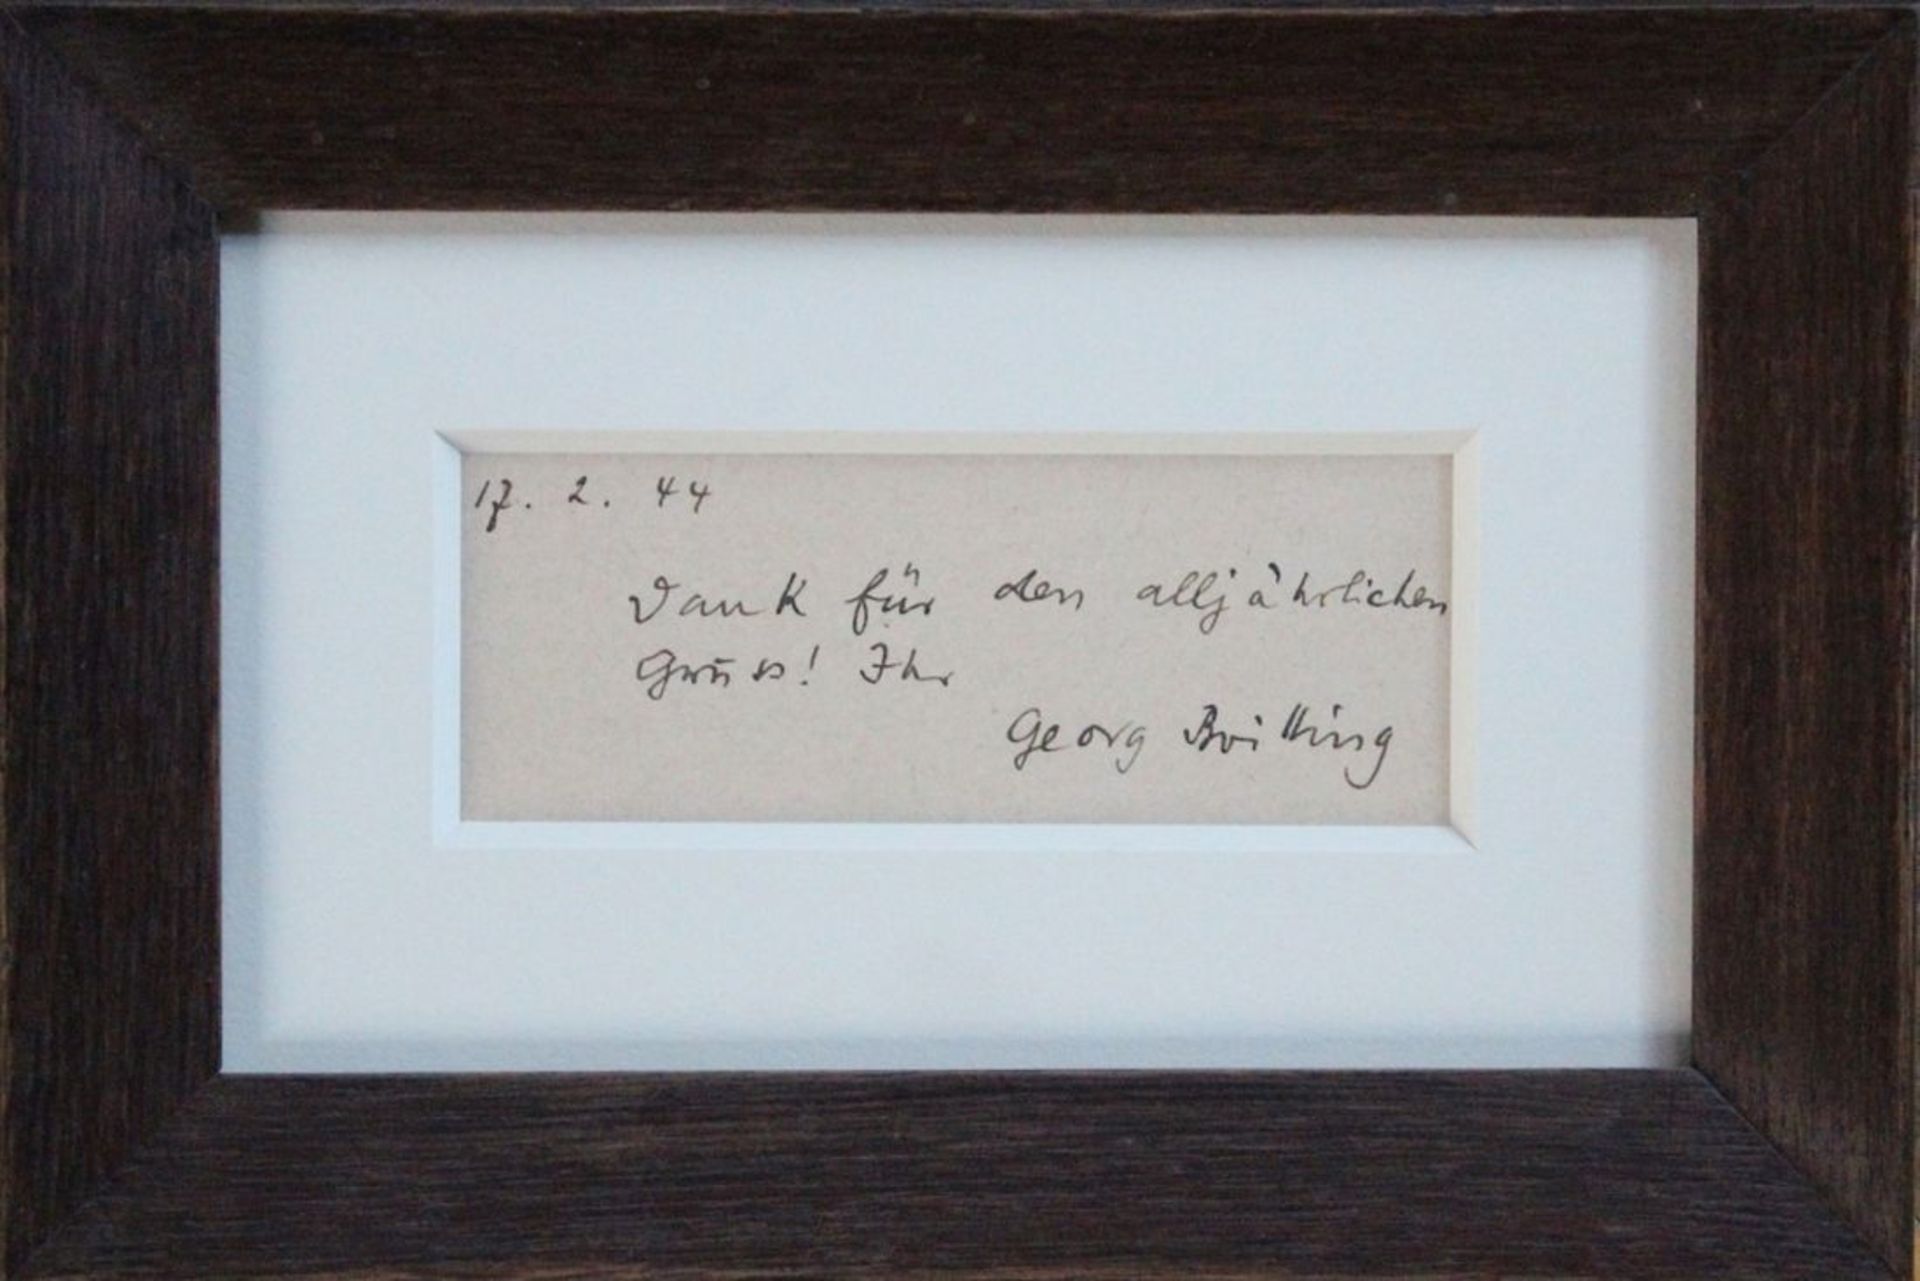 17. 2. 44
Dank für den alljährlichen
Gruss! Ihr
Georg Britting